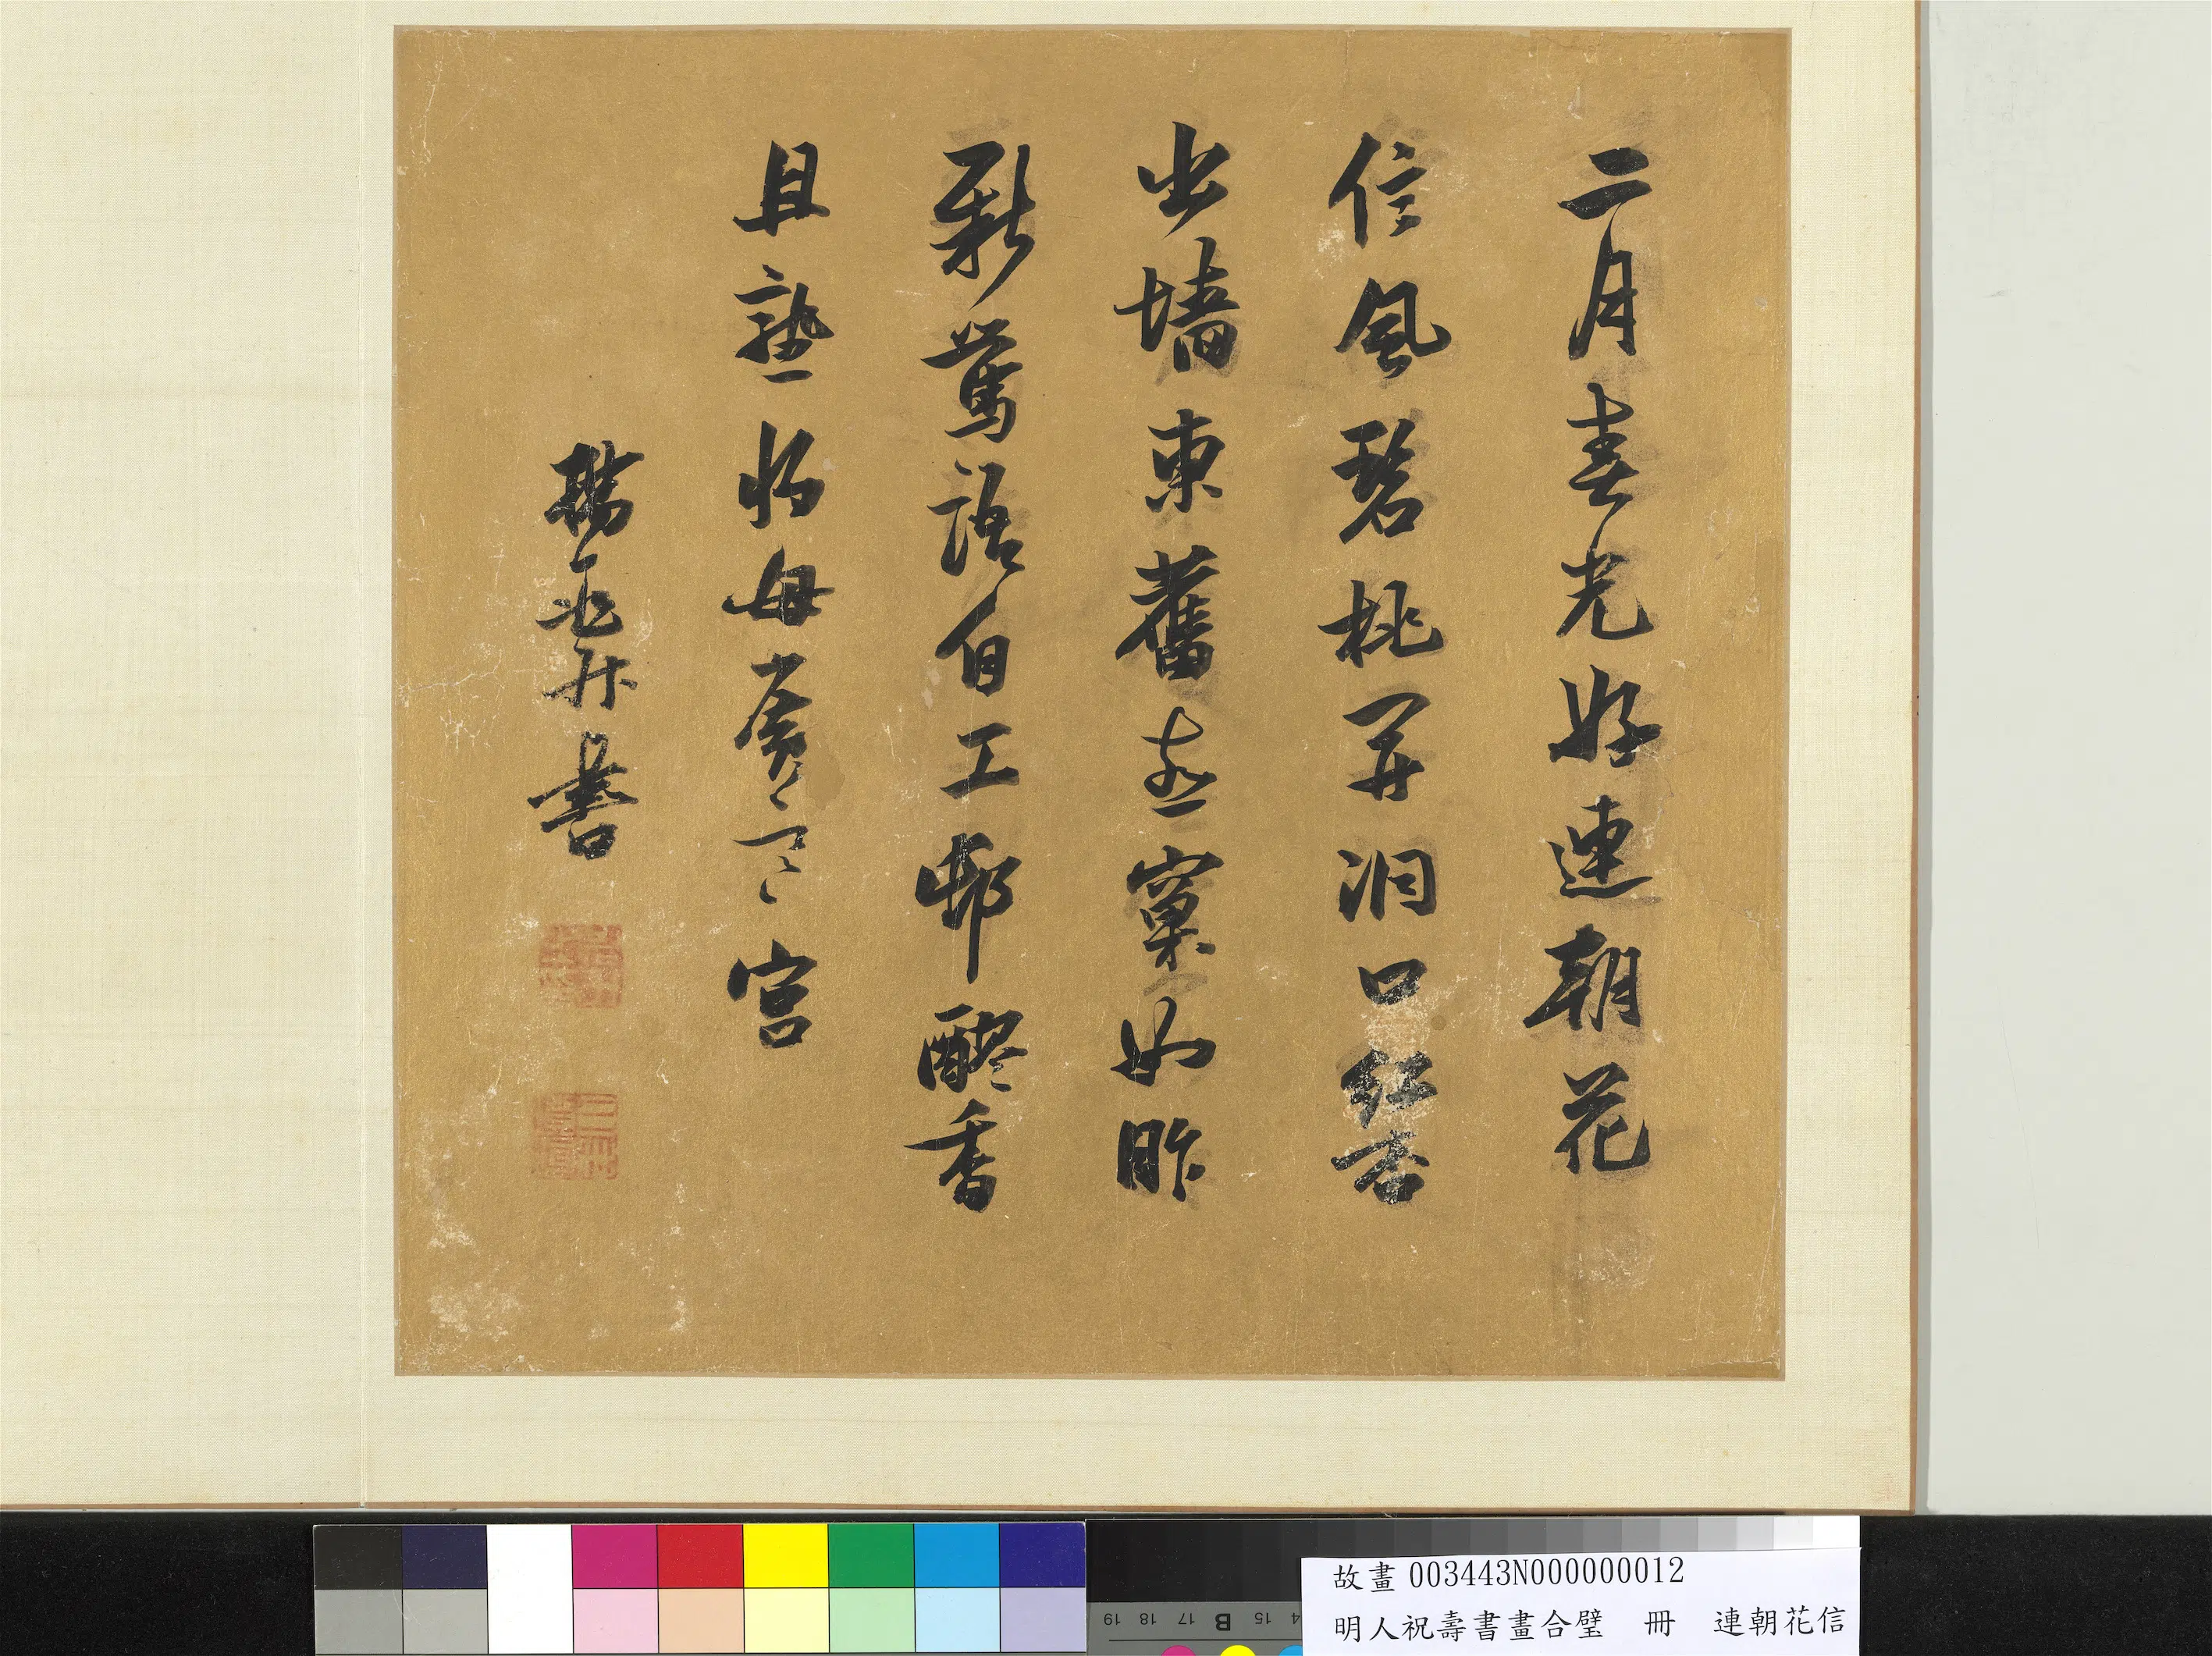 二月春光好連朝花
信風碧桃開洞口紅杏
出墻東舊燕窠如昨
新鶯語自工邨醪香
且熟將母賽ミ宮
楊
書
故畫 003443N000000012
明人祝壽書畫合璧 冊 連朝花信
19 18 17 B 15